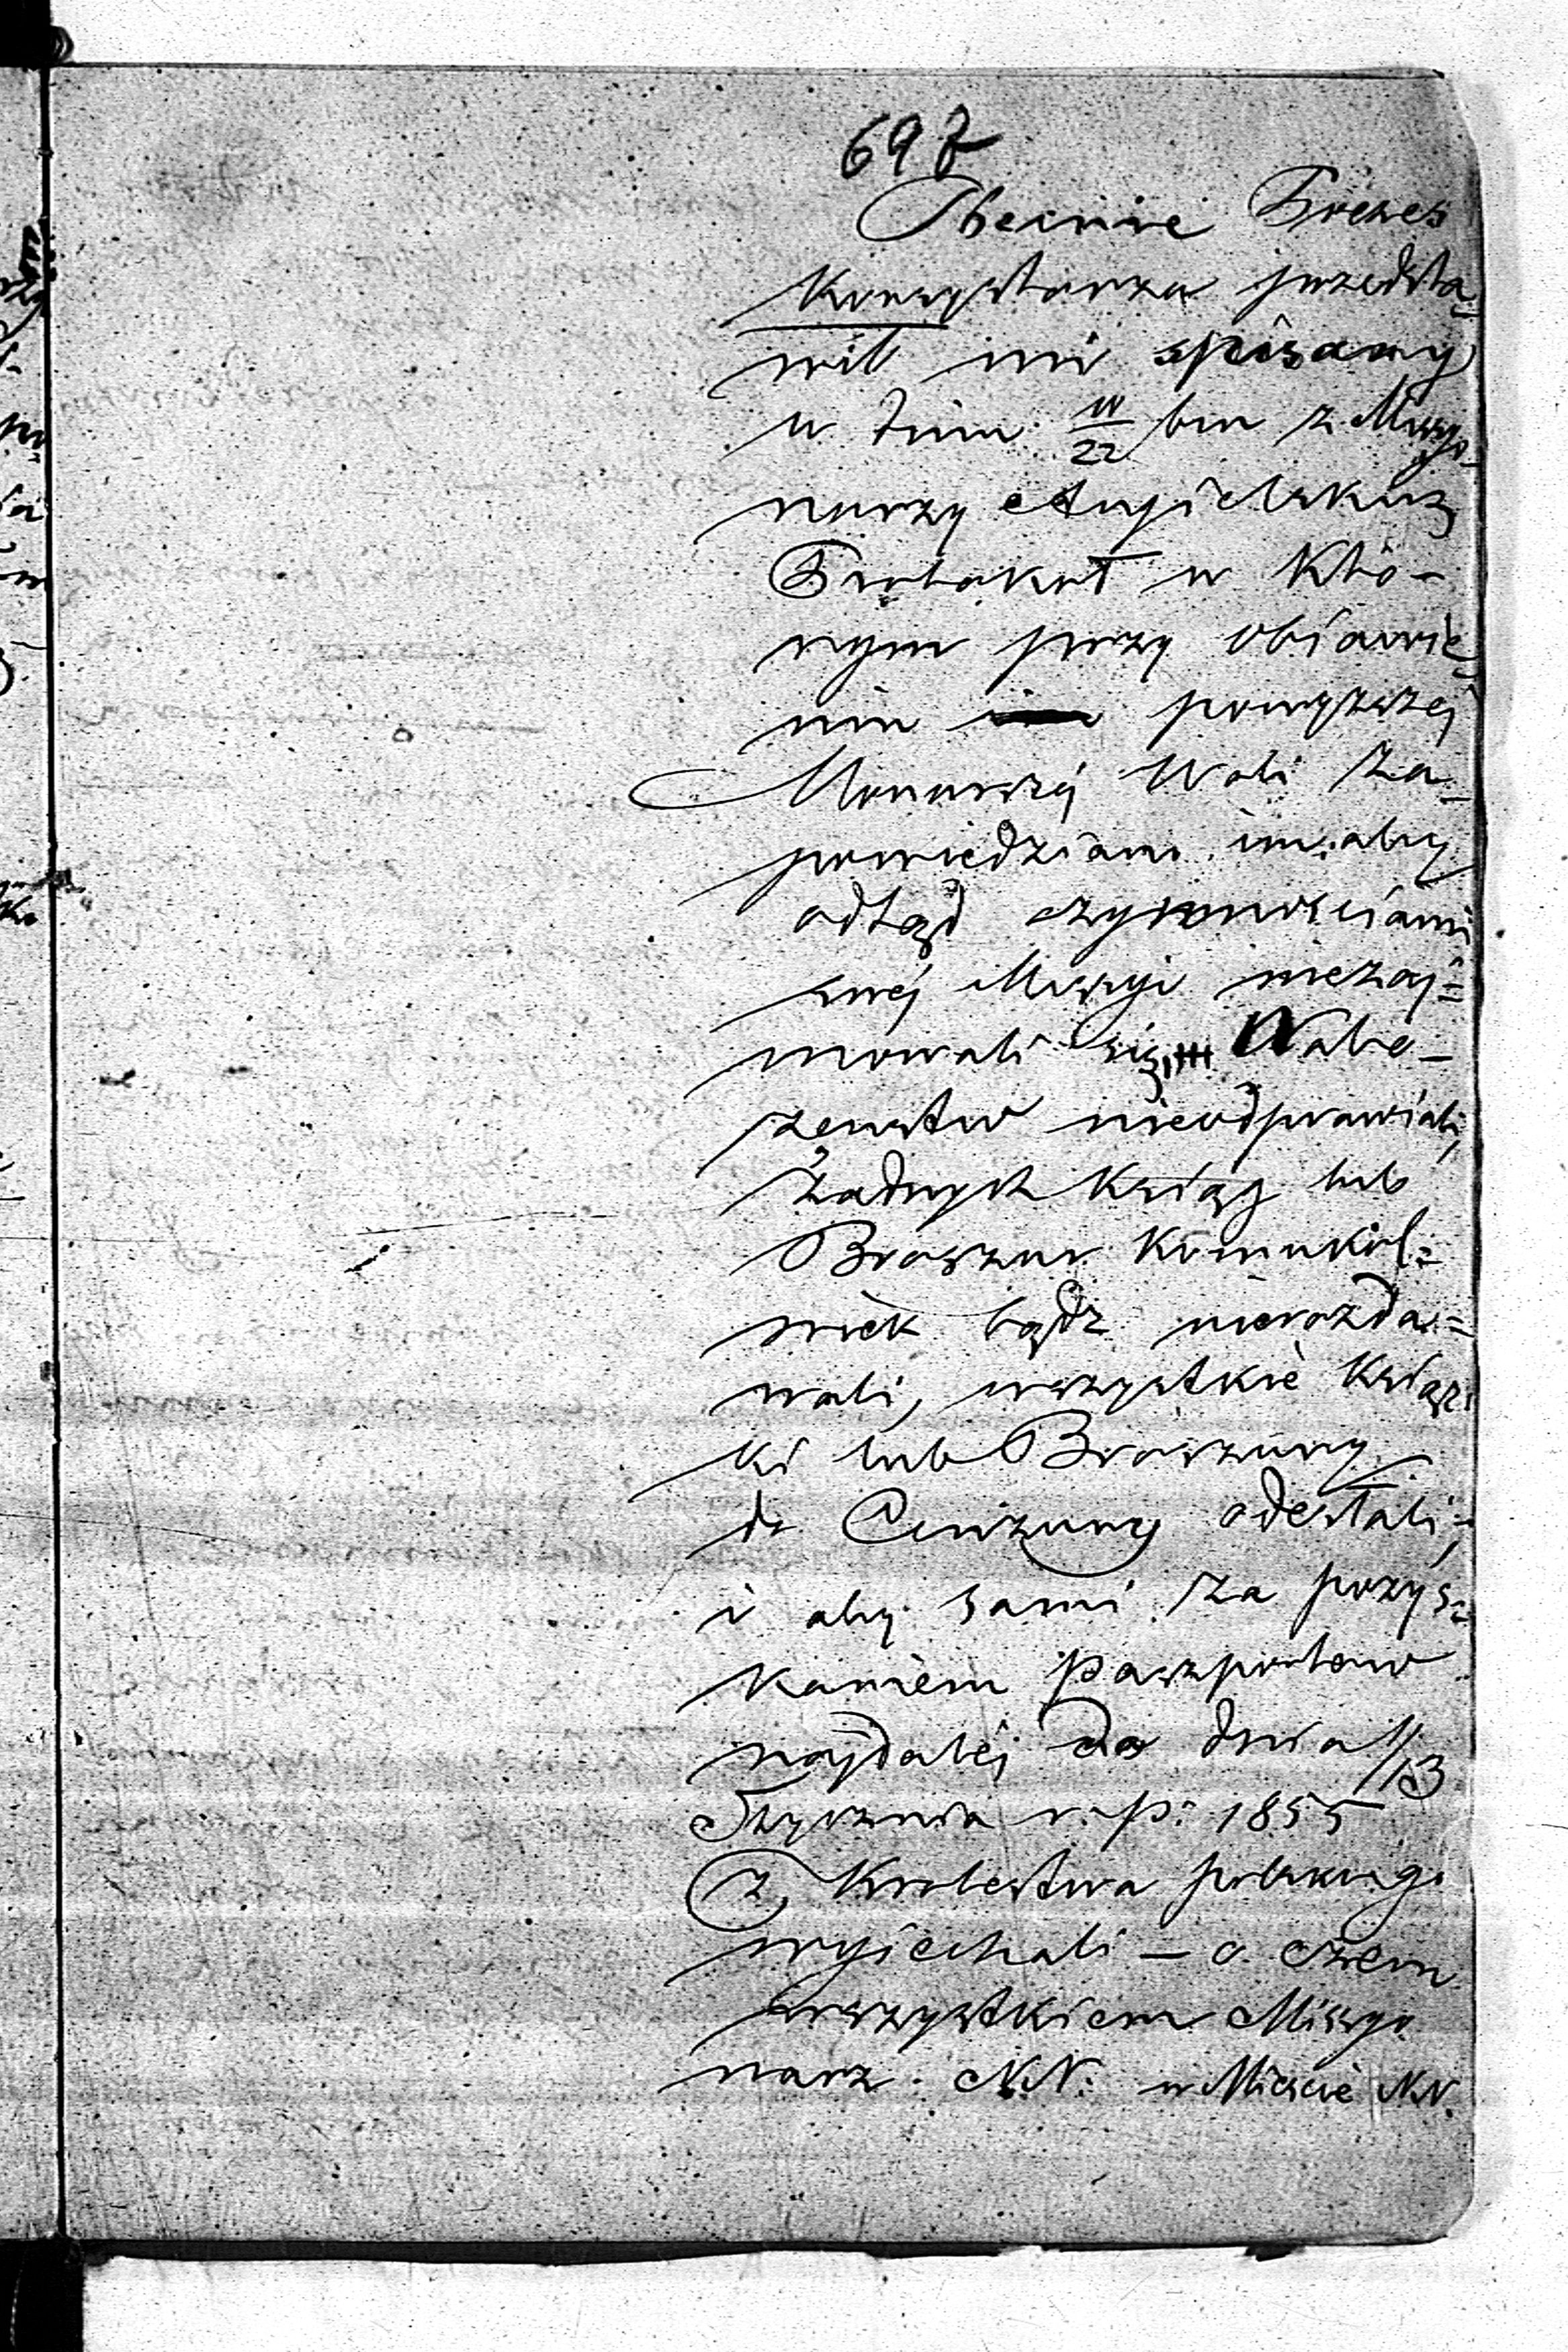 697
Obecnie Prezes
Konsystorza przedsta_
wił mi spisany
w dniu 10/22 bm z Missyo_
narzy Angielskich
Protokuł w któ-
rym przy obiawie_
niu powyższej
Monarszéj Woli za_
powiedziano im aby
odtąd czynnościami
swéj Missyi niezaj=
mowali się, Nabo-
żenstw nieodprawiali,
Żadnych Ksiąg lub
Broszur komukol=
wiek bądz nierozda=
wali, wszystkie Książ
ki lub Broszury
do Cenzury odesłali,
i aby sami za pozys=
kaniem Paszportow
najdaléj do dnia 1/13
Stycznia r. p. 1855
z Krolestwa polskiego
wyiechali — o czem
wszystkiem Missyo
narz N.N. w Miescie NN.